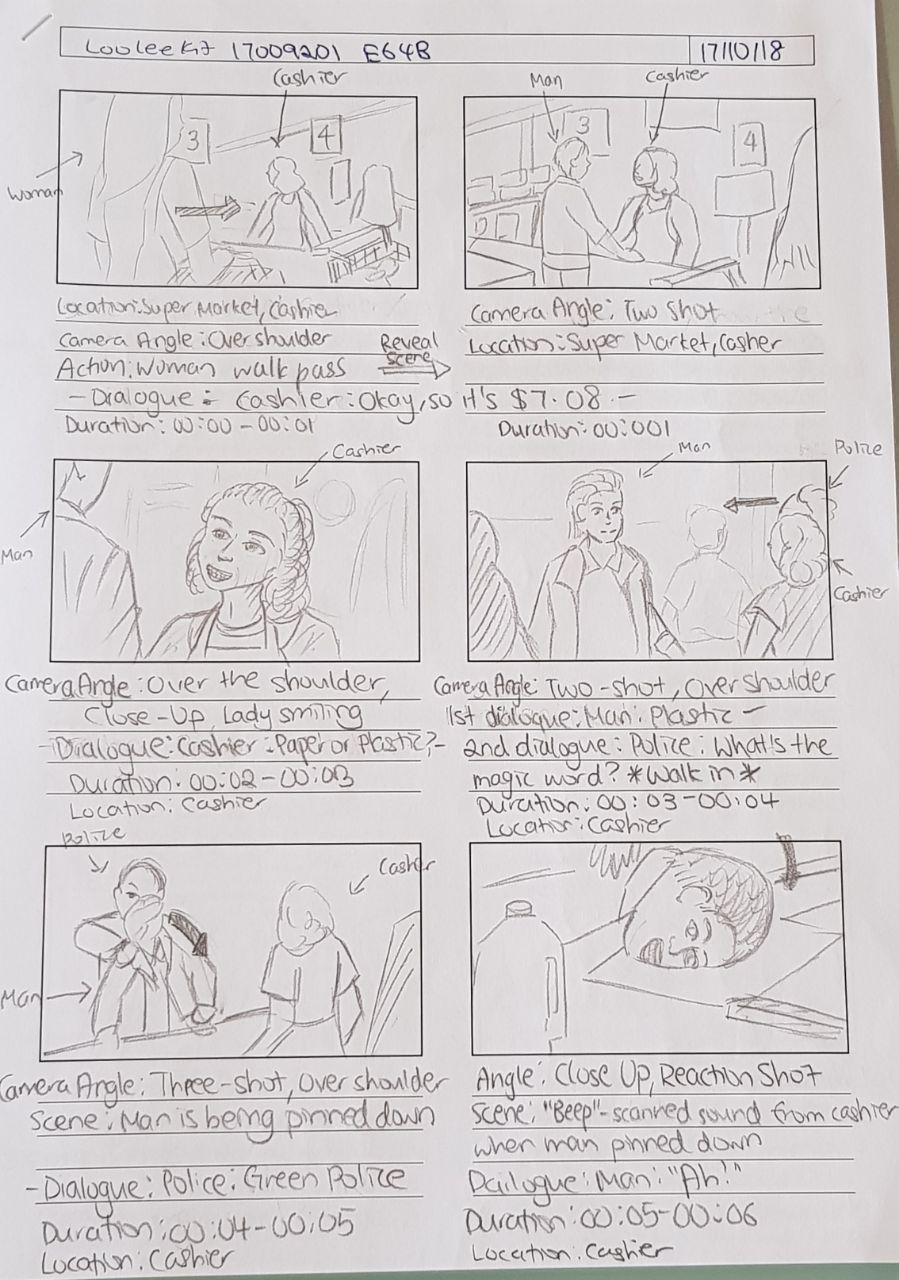 Loo Lee Kit 17009201 E64B 17/10/18
Cashier
Woman
3
4
Location: Super Market, Cashier
Camera Angle: Over shoulder
Action: Woman walk pass
Reveal Scene
- Dialogue: Cashier: Okay, so it's $7.08 -
Duration: 00:00 - 00:01
Man
Cashier
3
4
Camera Angle: Two Shot
Location: Super Market, Casher
Duration: 00:001
Cashier
Man
Camera Angle: Over the shoulder,
Close-Up, Lady smiling
- Dialogue: Cashier: Paper or Plastic? -
Duration: 00:02 - 00:03
Location: Cashier
Man
Police
Cashier
Camera Angle: Two-shot, Over shoulder
1st dialogue: Man: Plastic -
2nd dialogue: Police: What's the
magic word? *Walk in*
Duration: 00:03 - 00:04
Location: Cashier
Police
Casher
Man
Camera Angle: Three-shot, Over shoulder
Scene: Man is being pinned down
- Dialogue: Police: Green Police
Duration: 00:04 - 00:05
Location: Cashier
Angle: Close Up, Reaction Shot
Scene: "Beep" - scanned sound from cashier
when man pinned down
Dailogue: Man: "Ah!"
Duration: 00:05 - 00:06
Location: Cashier